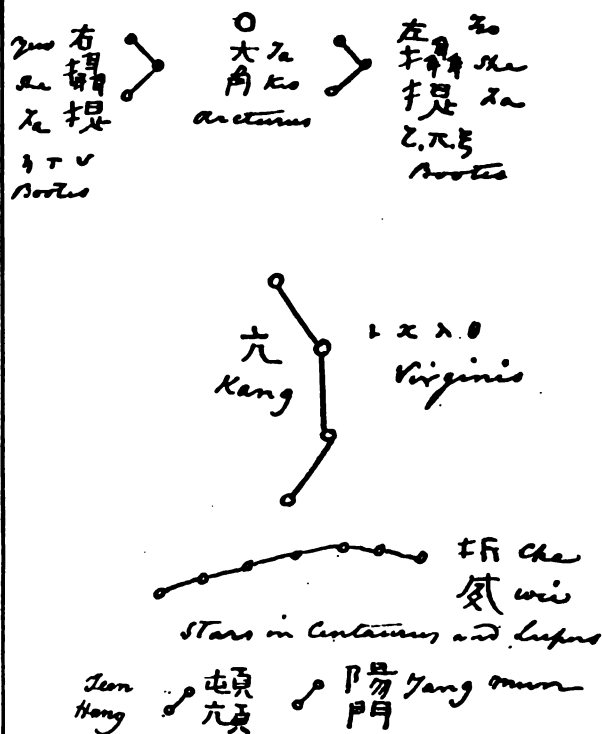 右
攝
提
η τ υ
Bootes
大 Ta
角 Kio
Arcturus
左 Tso
攝 She
提 Ta
ζ. π. ξ
Bootes
亢
Kang
ι κ λ θ
Virginis
折 Che
威 wei
Stars in Centaurus and Lupus
頓
Hang 頏
陽 Yang mun
門